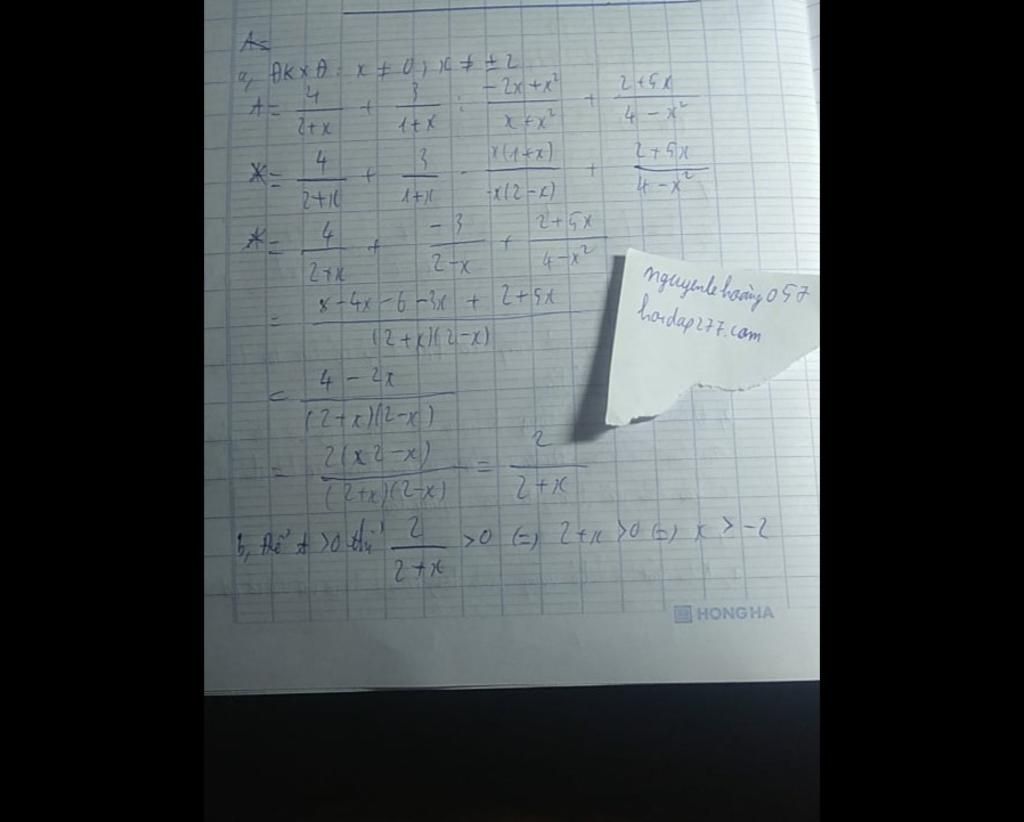 A=
a, ĐKXĐ: x ≠ 0; x ≠ ± 2
A = 4/(2+x) + 3/(1+x) : (-2x+x²)/(x+x²) + (2+5x)/(4-x²)
= 4/(2+x) + 3/(1+x) · x(1+x)/(-x(2-x)) + (2+5x)/(4-x²)
= 4/(2+x) + -3/(2-x) + (2+5x)/(4-x²)
= (8-4x-6-3x + 2+5x)/((2+x)(2-x))
= (4-2x)/((2+x)(2-x))
= 2(x2-x)/((2+x)(2-x)) = 2/(2+x)
b, Để A >0 thì 2/(2+x) >0 (=) 2+x >0 (=) x > -2
nguyenlehoang057
hoidap277.com
HONG HA